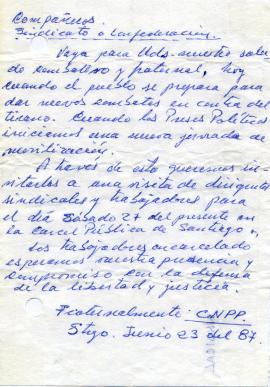 Compañeros.
Sindicato o Confederacion.
Vaya para Uds. nuestro saludo
combativo y fraternal, hoy
cuando el pueblo se prepara para
dar nuevos combates en contra del
tirano. Cuando los Presos Politicos
iniciamos una nueva jornada de
movilización.
A través de esto queremos in-
vitarlos a una visita de dirigentes
sindicales y trabajadores para
el dia Sábado 27 del presente en
la Carcel Pública de Santiago,
Los trabajadores encarcelados
esperamos vuestra presencia y
compromiso en la defensa
de la libertad y justicia.
Fraternalmente: CNPP.
Stgo. Junio 23 del 87.